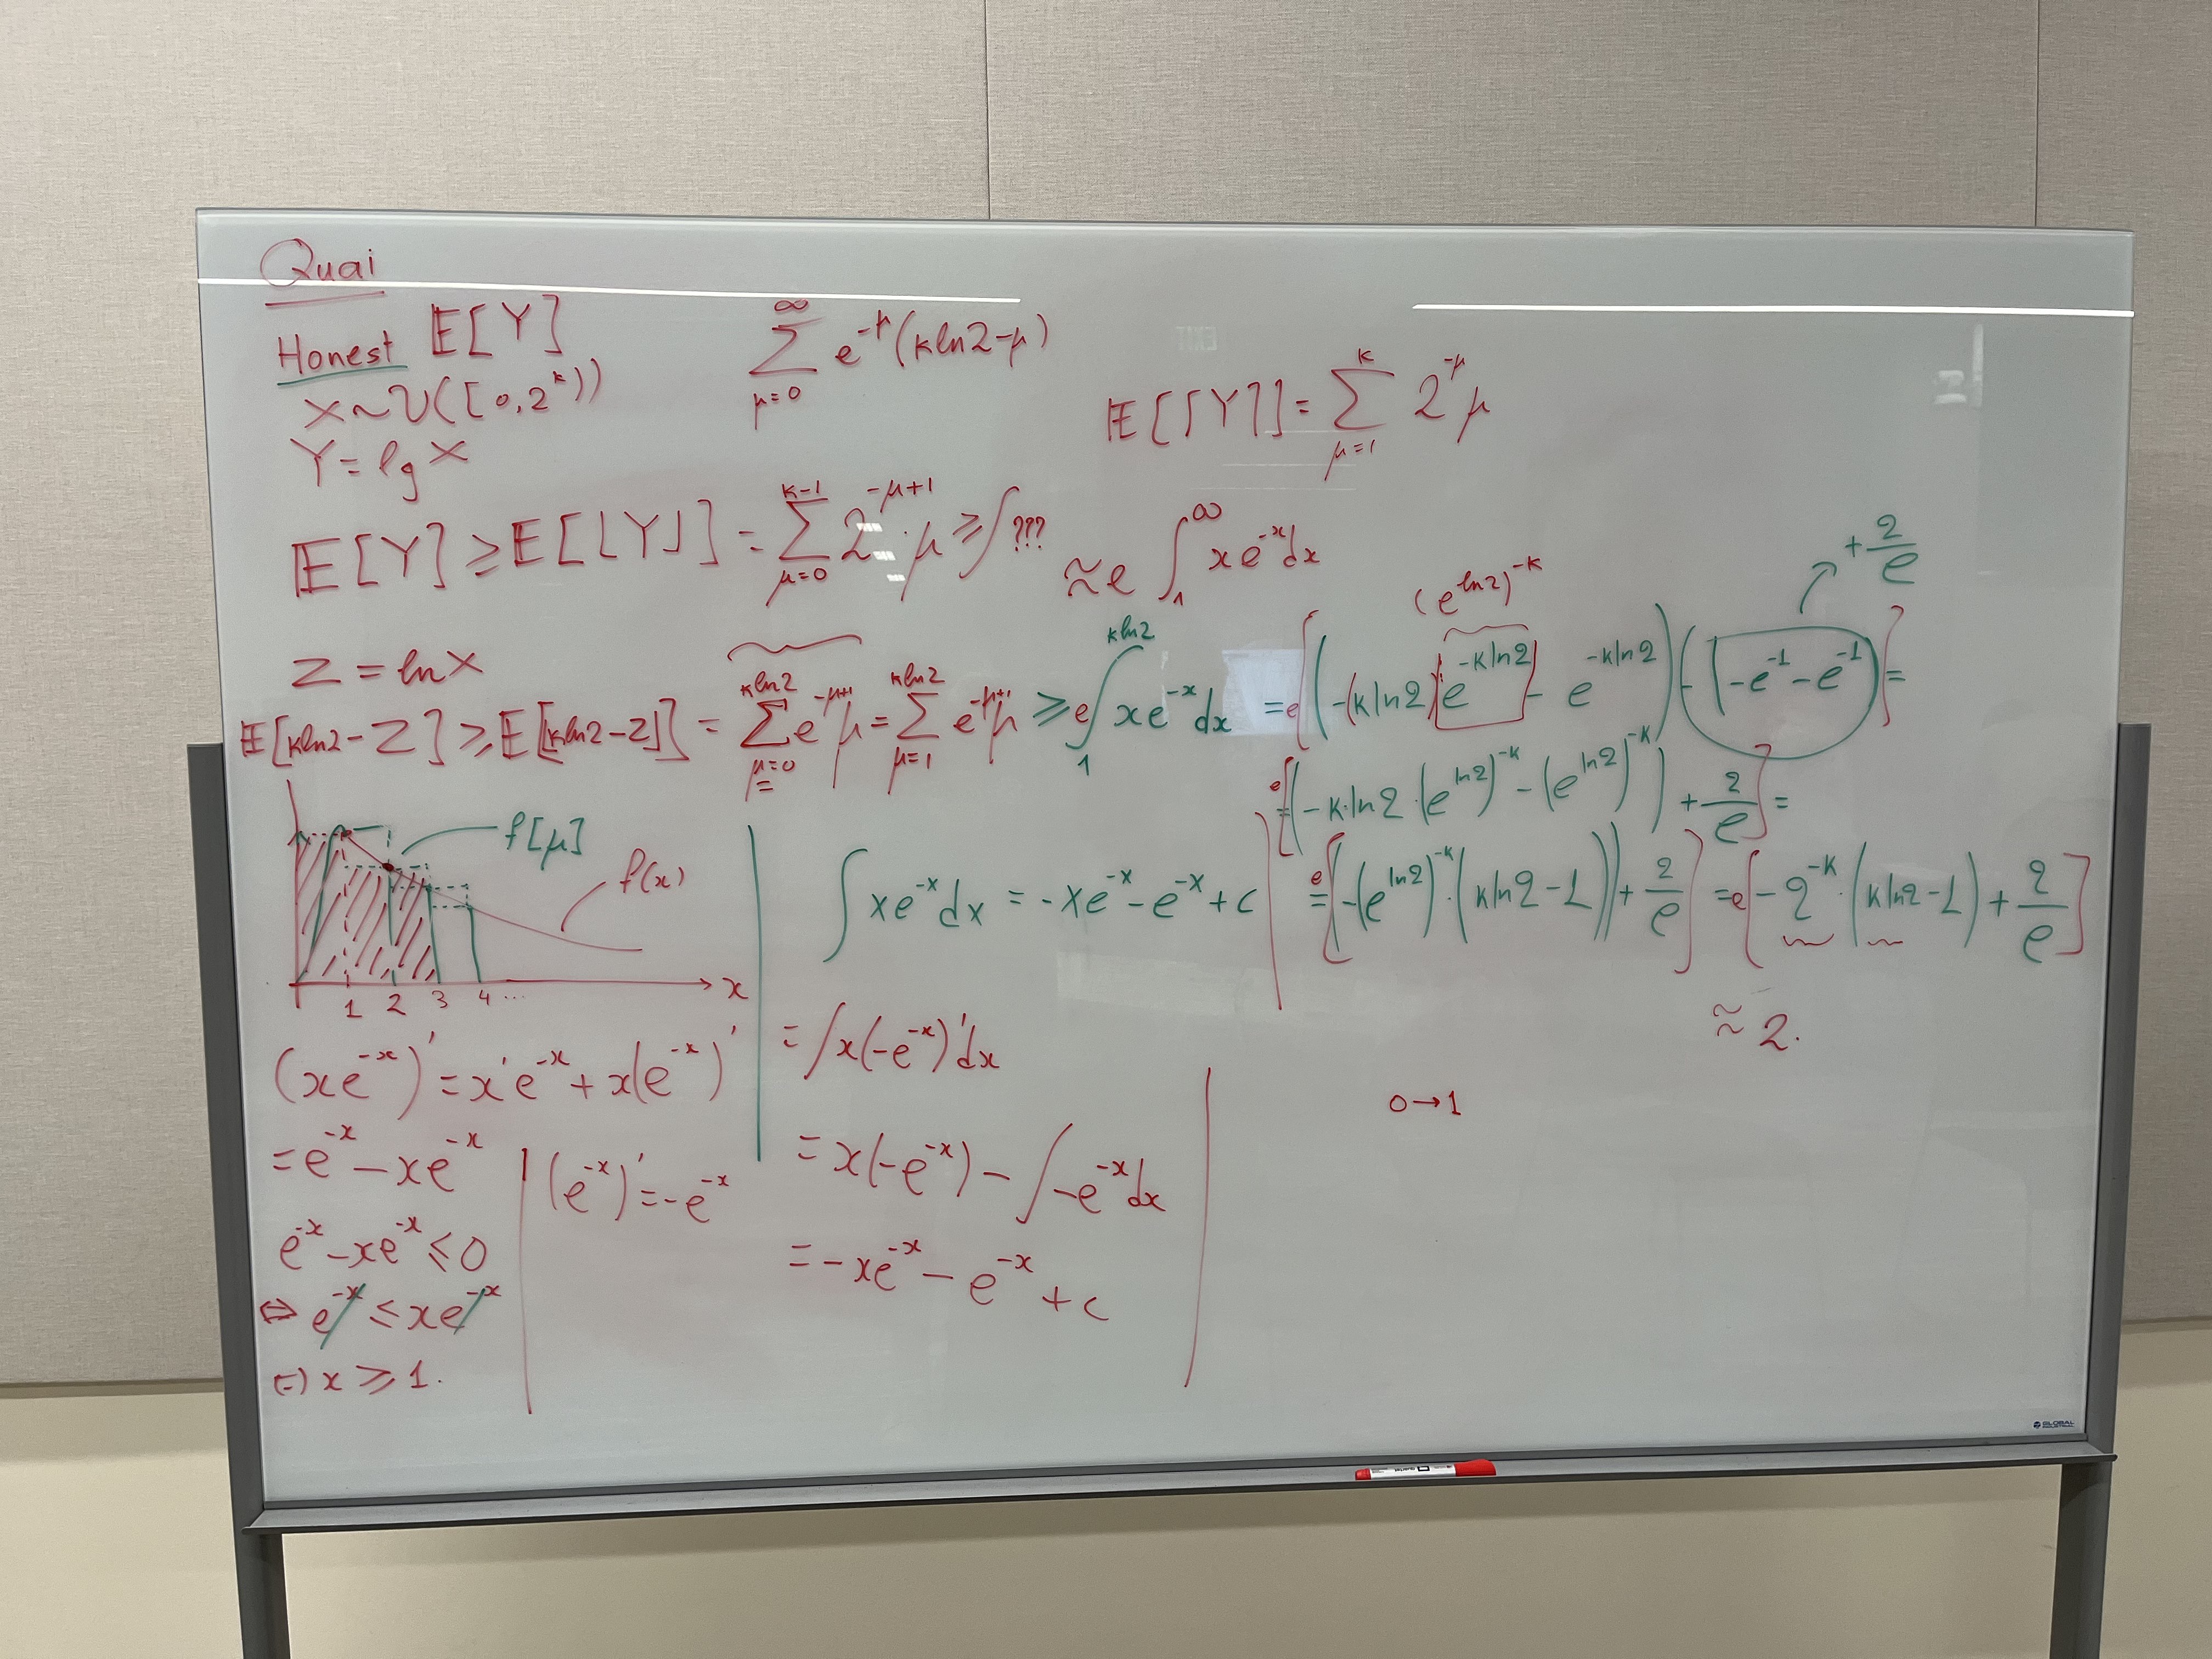 Quai
Honest 𝔼[Y]
X~U([0,2^k))
Y = lg X
∑_{μ=0}^{∞} e^{-μ}(kln2-μ)
𝔼[⌈Y⌉] = ∑_{μ=1}^{k} 2^{-μ} μ
𝔼[Y] ≥ 𝔼[⌊Y⌋] = ∑_{μ=0}^{k-1} 2^{-μ+1}·μ ≥ ∫???
≈ e ∫_1^∞ xe^{-x}dx
(e^{ln2})^{-k}
+ 2/e
Z = ln X
𝔼[kln2-Z] ≥ 𝔼[⌊kln2-Z⌋] = ∑_{μ=0}^{kln2} e^{-μ+1} μ = ∑_{μ=1}^{kln2} e^{-μ+1} μ ≥ e∫_1^{kln2} xe^{-x}dx = e[(-(kln2)e^{-kln2} - e^{-kln2}) - (-e^{-1}-e^{-1})] =
= e[(-k·ln2·(e^{ln2})^{-k} - (e^{ln2})^{-k}) + 2/e] =
= e[(-(e^{ln2})^{-k}·(kln2-1)) + 2/e] = e[-2^{-k}·(kln2-1) + 2/e]
≈ 2.
f[μ]
f(x)
1 2 3 4 ... x
(xe^{-x})' = x'e^{-x} + x(e^{-x})'
= e^{-x} - xe^{-x}
e^{-x} - xe^{-x} ≤ 0
⇔ e^{-x} ≤ xe^{-x}
⇔ x ≥ 1.
(e^{-x})' = -e^{-x}
∫xe^{-x}dx = -xe^{-x} - e^{-x} + c
= ∫x(-e^{-x})'dx
= x(-e^{-x}) - ∫-e^{-x}dx
= -xe^{-x} - e^{-x} + c
0→1
GLOBAL